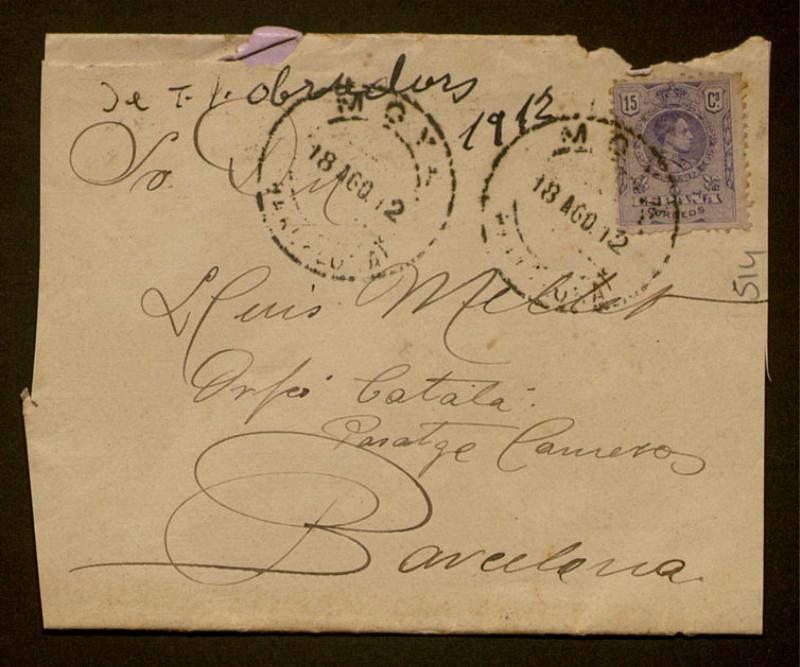 De T. J. Obradors
1912
Sr. Dn
Lluis Millet
Orfeó Català.
Pasatge Cameros
Barcelona
MOYA
18 AGO.12
BARCELONA
MOYA
18 AGO.12
BARCELONA
15 Cs
ESPAÑA
CORREOS
514